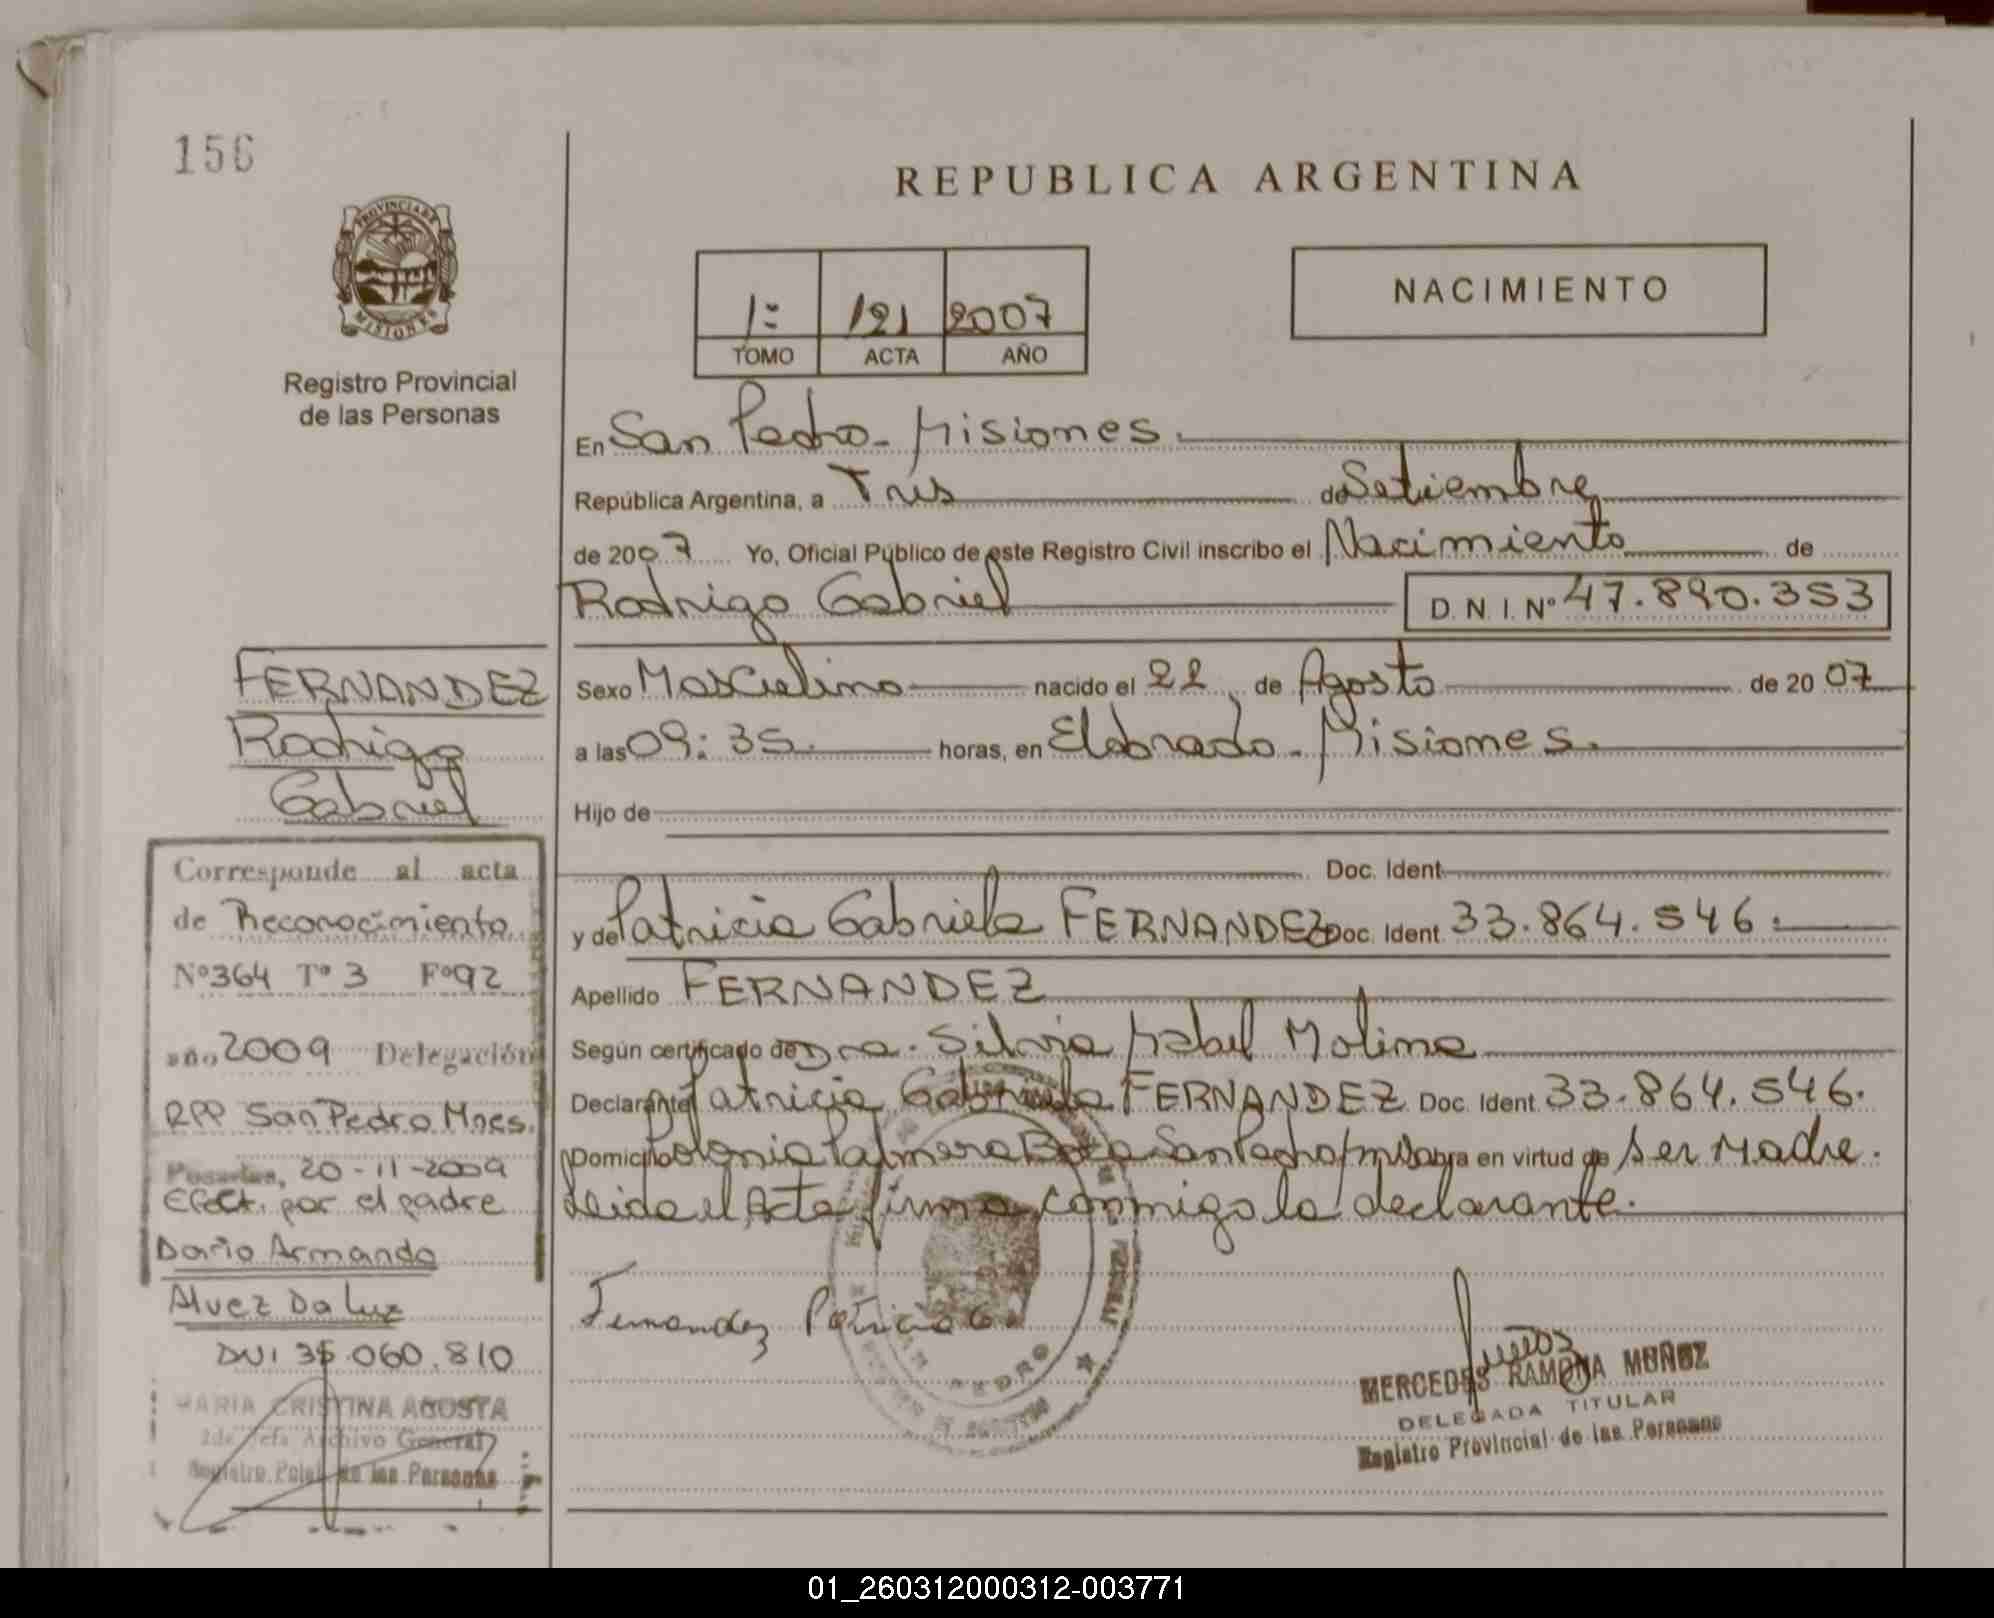 156
REPUBLICA ARGENTINA
PROVINCIA DE
MISIONES
Registro Provincial
de las Personas
1= 121 2007
TOMO ACTA AÑO
NACIMIENTO
En San Pedro - Misiones.
República Argentina, a Tres de Setiembre
de 2007 Yo, Oficial Público de este Registro Civil inscribo el Nacimiento de
Rodrigo Gabriel D.N.I. Nº 47.890.353
FERNANDEZ
Rodrigo
Gabriel
Sexo Masculino nacido el 22 de Agosto de 2007
a las 09:35. horas, en Eldorado - Misiones.
Hijo de
Doc. Ident.
y de Patricia Gabriela FERNANDEZ Doc. Ident. 33.864.546.
Apellido FERNANDEZ
Según certificado de Dra. Silvia Mabel Molina
Declarante Patricia Gabriela FERNANDEZ Doc. Ident. 33.864.546.
Domicilio Colonia Palmera Boca San Pedro Obra en virtud de ser Madre.
Leida el Acta firma conmigo la declarante.
Fernandez Patricia G.
PEDRO
MERCEDES RAMONA MUÑOZ
DELEGADA TITULAR
Registro Provincial de las Personas
Corresponde al acta
de Reconocimiento
Nº 364 Tº 3 Fº 92
año 2009 Delegación
RPP San Pedro Mnes.
Posadas, 20-11-2009
Efect. por el padre
Dario Armando
Alvez Da Luz
DNI 35.060.810
MARIA CRISTINA ACOSTA
2da Jefa Archivo General
Registro Pcial de las Personas
01_260312000312-003771